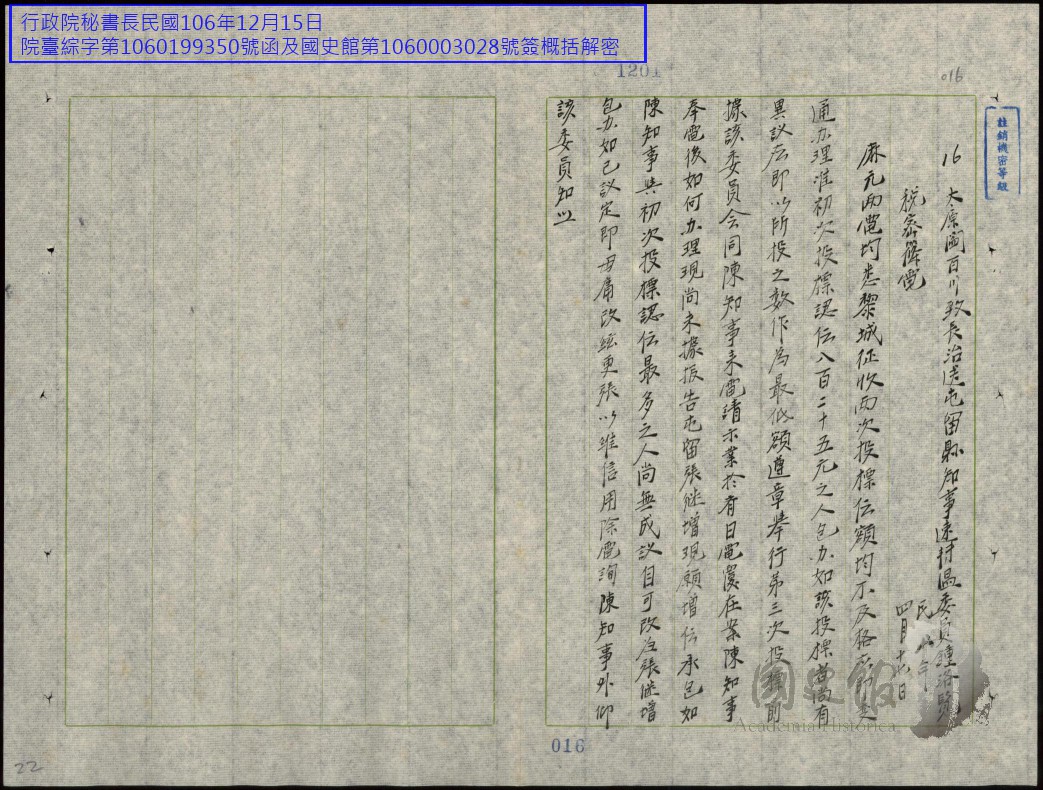 行政院秘書長民國106年12月15日
院臺綜字第1060199350號函及國史館第1060003028號簽概括解密
1201
016
註銷機密等級
16 太原閻百川致長治送屯留縣知事速付溫委員鍾洛覽
稅密篠電
民八年
四月十七日
麻元兩電均悉黎城征收兩次投標伝額均不及格
通办理准初次投標認伝八百二十五元之人包办如該投標者尚有
異議应即以所投之数作為最低額遵章举行第三次投標前
據該委員会同陳知事来電請示業於有日電復在案陳知事
奉電後如何办理現尚未據报告屯留張继增現願增伝承包如
陳知事與初次投標認伝最多之人尚無成议自可改归張继增
包办如已议定即毋庸改絃更張以维信用除電詢陳知事外仰
該委員知以
國史館
Academia Historica
016
22